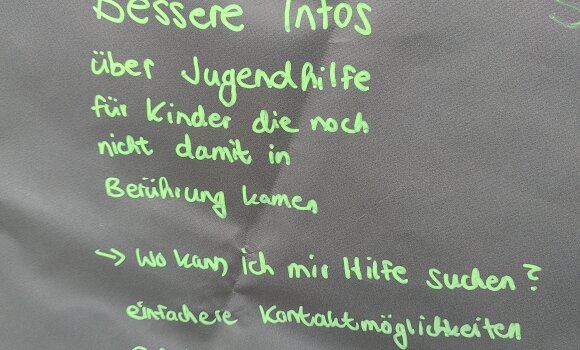 Bessere Infos
über Jugendhilfe
für Kinder die noch
nicht damit in
Berührung kamen
→ Wo kann ich mir Hilfe suchen?
einfachere Kontaktmöglichkeiten